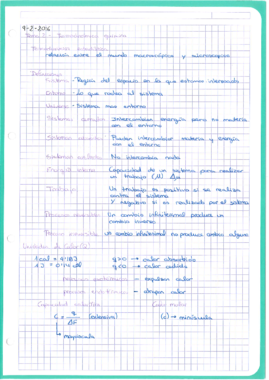 9-2-2016
Tema 1: Termodinámica química
Termodinámica estadística
relación entre el mundo macroscópico y microscópico
Sistema - Región del espacio en la que estamos interesado
Entorno - Lo que rodea al sistema
Universo - Sistema más entorno
Sistema cerrado Intercambian energía pero no materia
con el entorno
Sistema abierto Pueden intercambiar materia y energía
con el entorno
Sistema aislado No intercambia nada
Energía interna Capacidad de un sistema para realizar
un trabajo (U) ΔU
Trabajo Un trabajo es positivo si se realiza
contra el sistema
Y negativo si es realizado por el sistema
Proceso reversible Un cambio infinitesimal produce un
cambio inverso
Proceso irreversible Un cambio infinitesimal no produce cambio alguno
1 cal = 4'18J q>0 → calor absorbido
1 J = 0'24 cal q<0 → calor cedido
proceso exotérmico - expulsan calor
proceso endotérmico - atrapan calor
Capacidad calorífica
C = q / ΔT (extensiva) (c) → minúscula
mayúscula